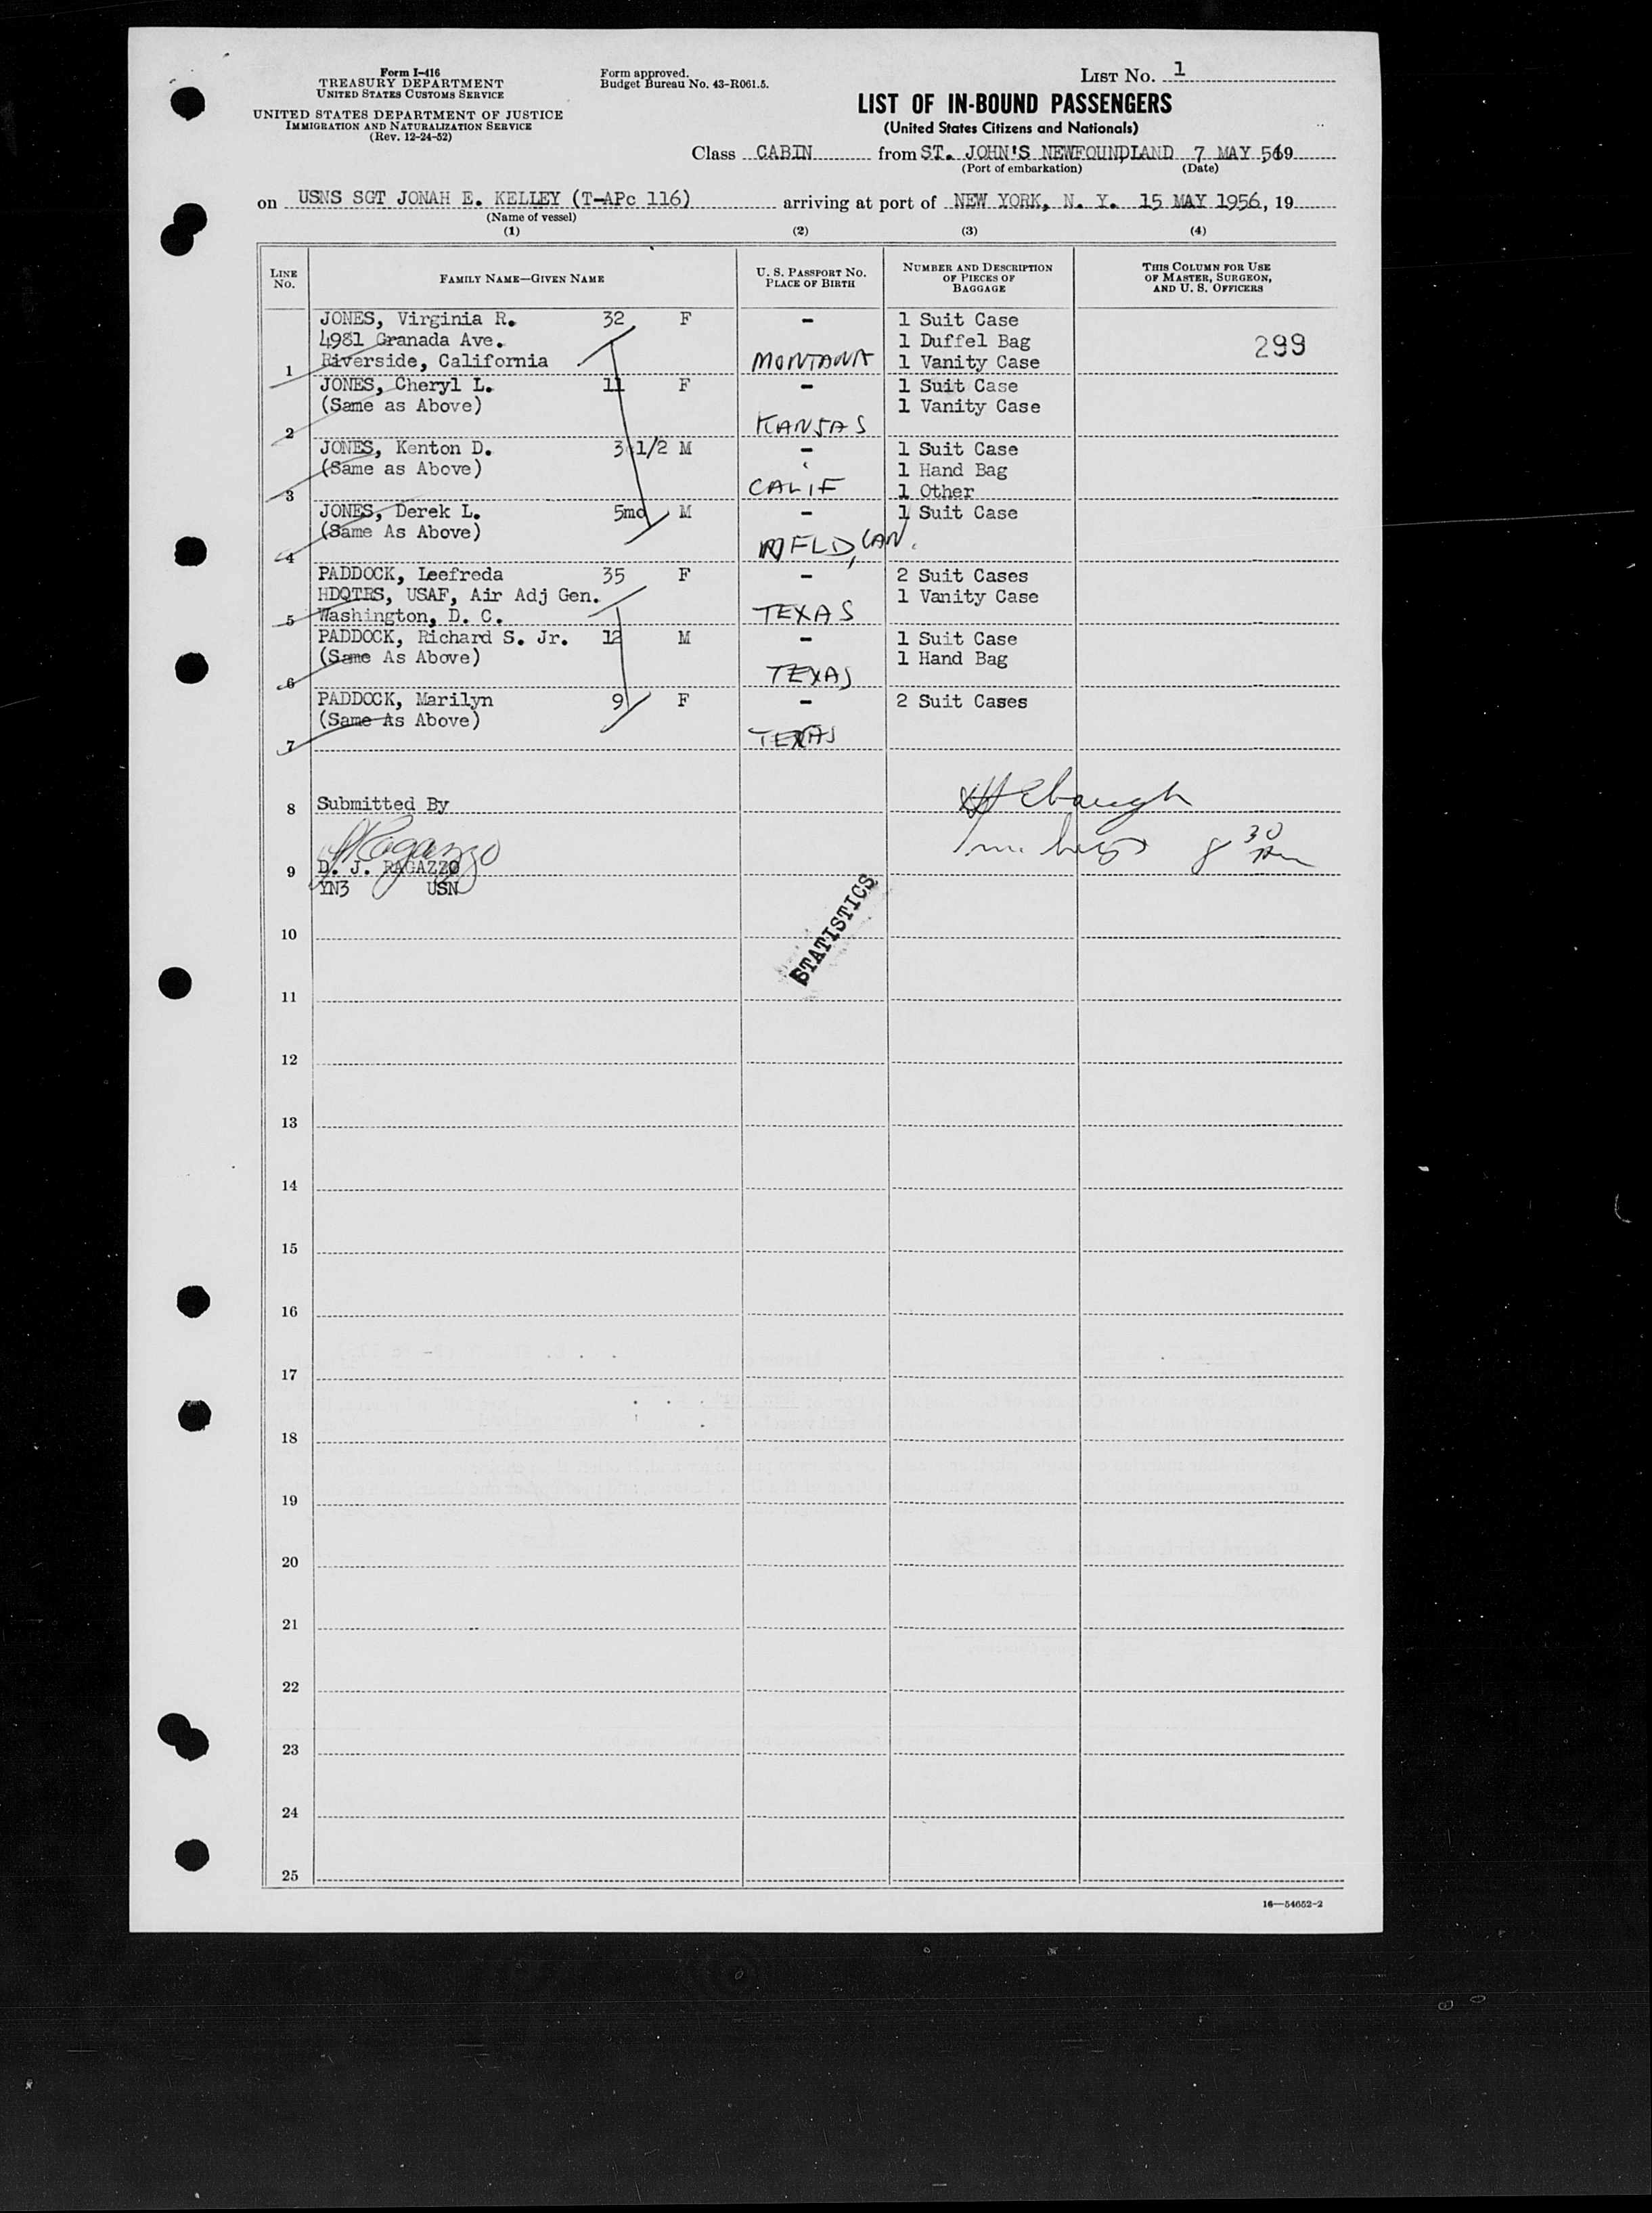 Form I-416
TREASURY DEPARTMENT
UNITED STATES CUSTOMS SERVICE
UNITED STATES DEPARTMENT OF JUSTICE
IMMIGRATION AND NATURALIZATION SERVICE
(Rev. 12-24-52)
Form approved.
Budget Bureau No. 43-R061.5.
LIST NO. 1
LIST OF IN-BOUND PASSENGERS
(United States Citizens and Nationals)
Class CABIN from ST. JOHN'S NEWFOUNDLAND 7 MAY 56 19
(Port of embarkation) (Date)
on USNS SGT JONAH E. KELLEY (T-APc 116) arriving at port of NEW YORK, N. Y. 15 MAY 1956, 19
(Name of vessel)
(1) (2) (3) (4)
LINE NO. FAMILY NAME—GIVEN NAME U. S. PASSPORT NO. PLACE OF BIRTH NUMBER AND DESCRIPTION OF PIECES OF BAGGAGE THIS COLUMN FOR USE OF MASTER, SURGEON, AND U. S. OFFICERS
JONES, Virginia R. 32 F - 1 Suit Case
4981 Granada Ave. 1 Duffel Bag 299
1 Riverside, California MONTANA 1 Vanity Case
JONES, Cheryl L. 11 F - 1 Suit Case
(Same as Above) 1 Vanity Case
2 KANSAS
JONES, Kenton D. 3 1/2 M - 1 Suit Case
(Same as Above) 1 Hand Bag
3 CALIF 1 Other
JONES, Derek L. 5mo M - 1 Suit Case
(Same As Above)
4 NFLD, CAN.
PADDOCK, Leefreda 35 F - 2 Suit Cases
HDQTRS, USAF, Air Adj Gen. 1 Vanity Case
5 Washington, D. C. TEXAS
PADDOCK, Richard S. Jr. 12 M - 1 Suit Case
(Same As Above) 1 Hand Bag
6 TEXAS
PADDOCK, Marilyn 9 F - 2 Suit Cases
(Same As Above)
7 TEXAS
8 Submitted By
8 30
9 D. J. RAGAZZO
YN3 USN
STATISTICS
10
11
12
13
14
15
16
17
18
19
20
21
22
23
24
25
16—54652-2